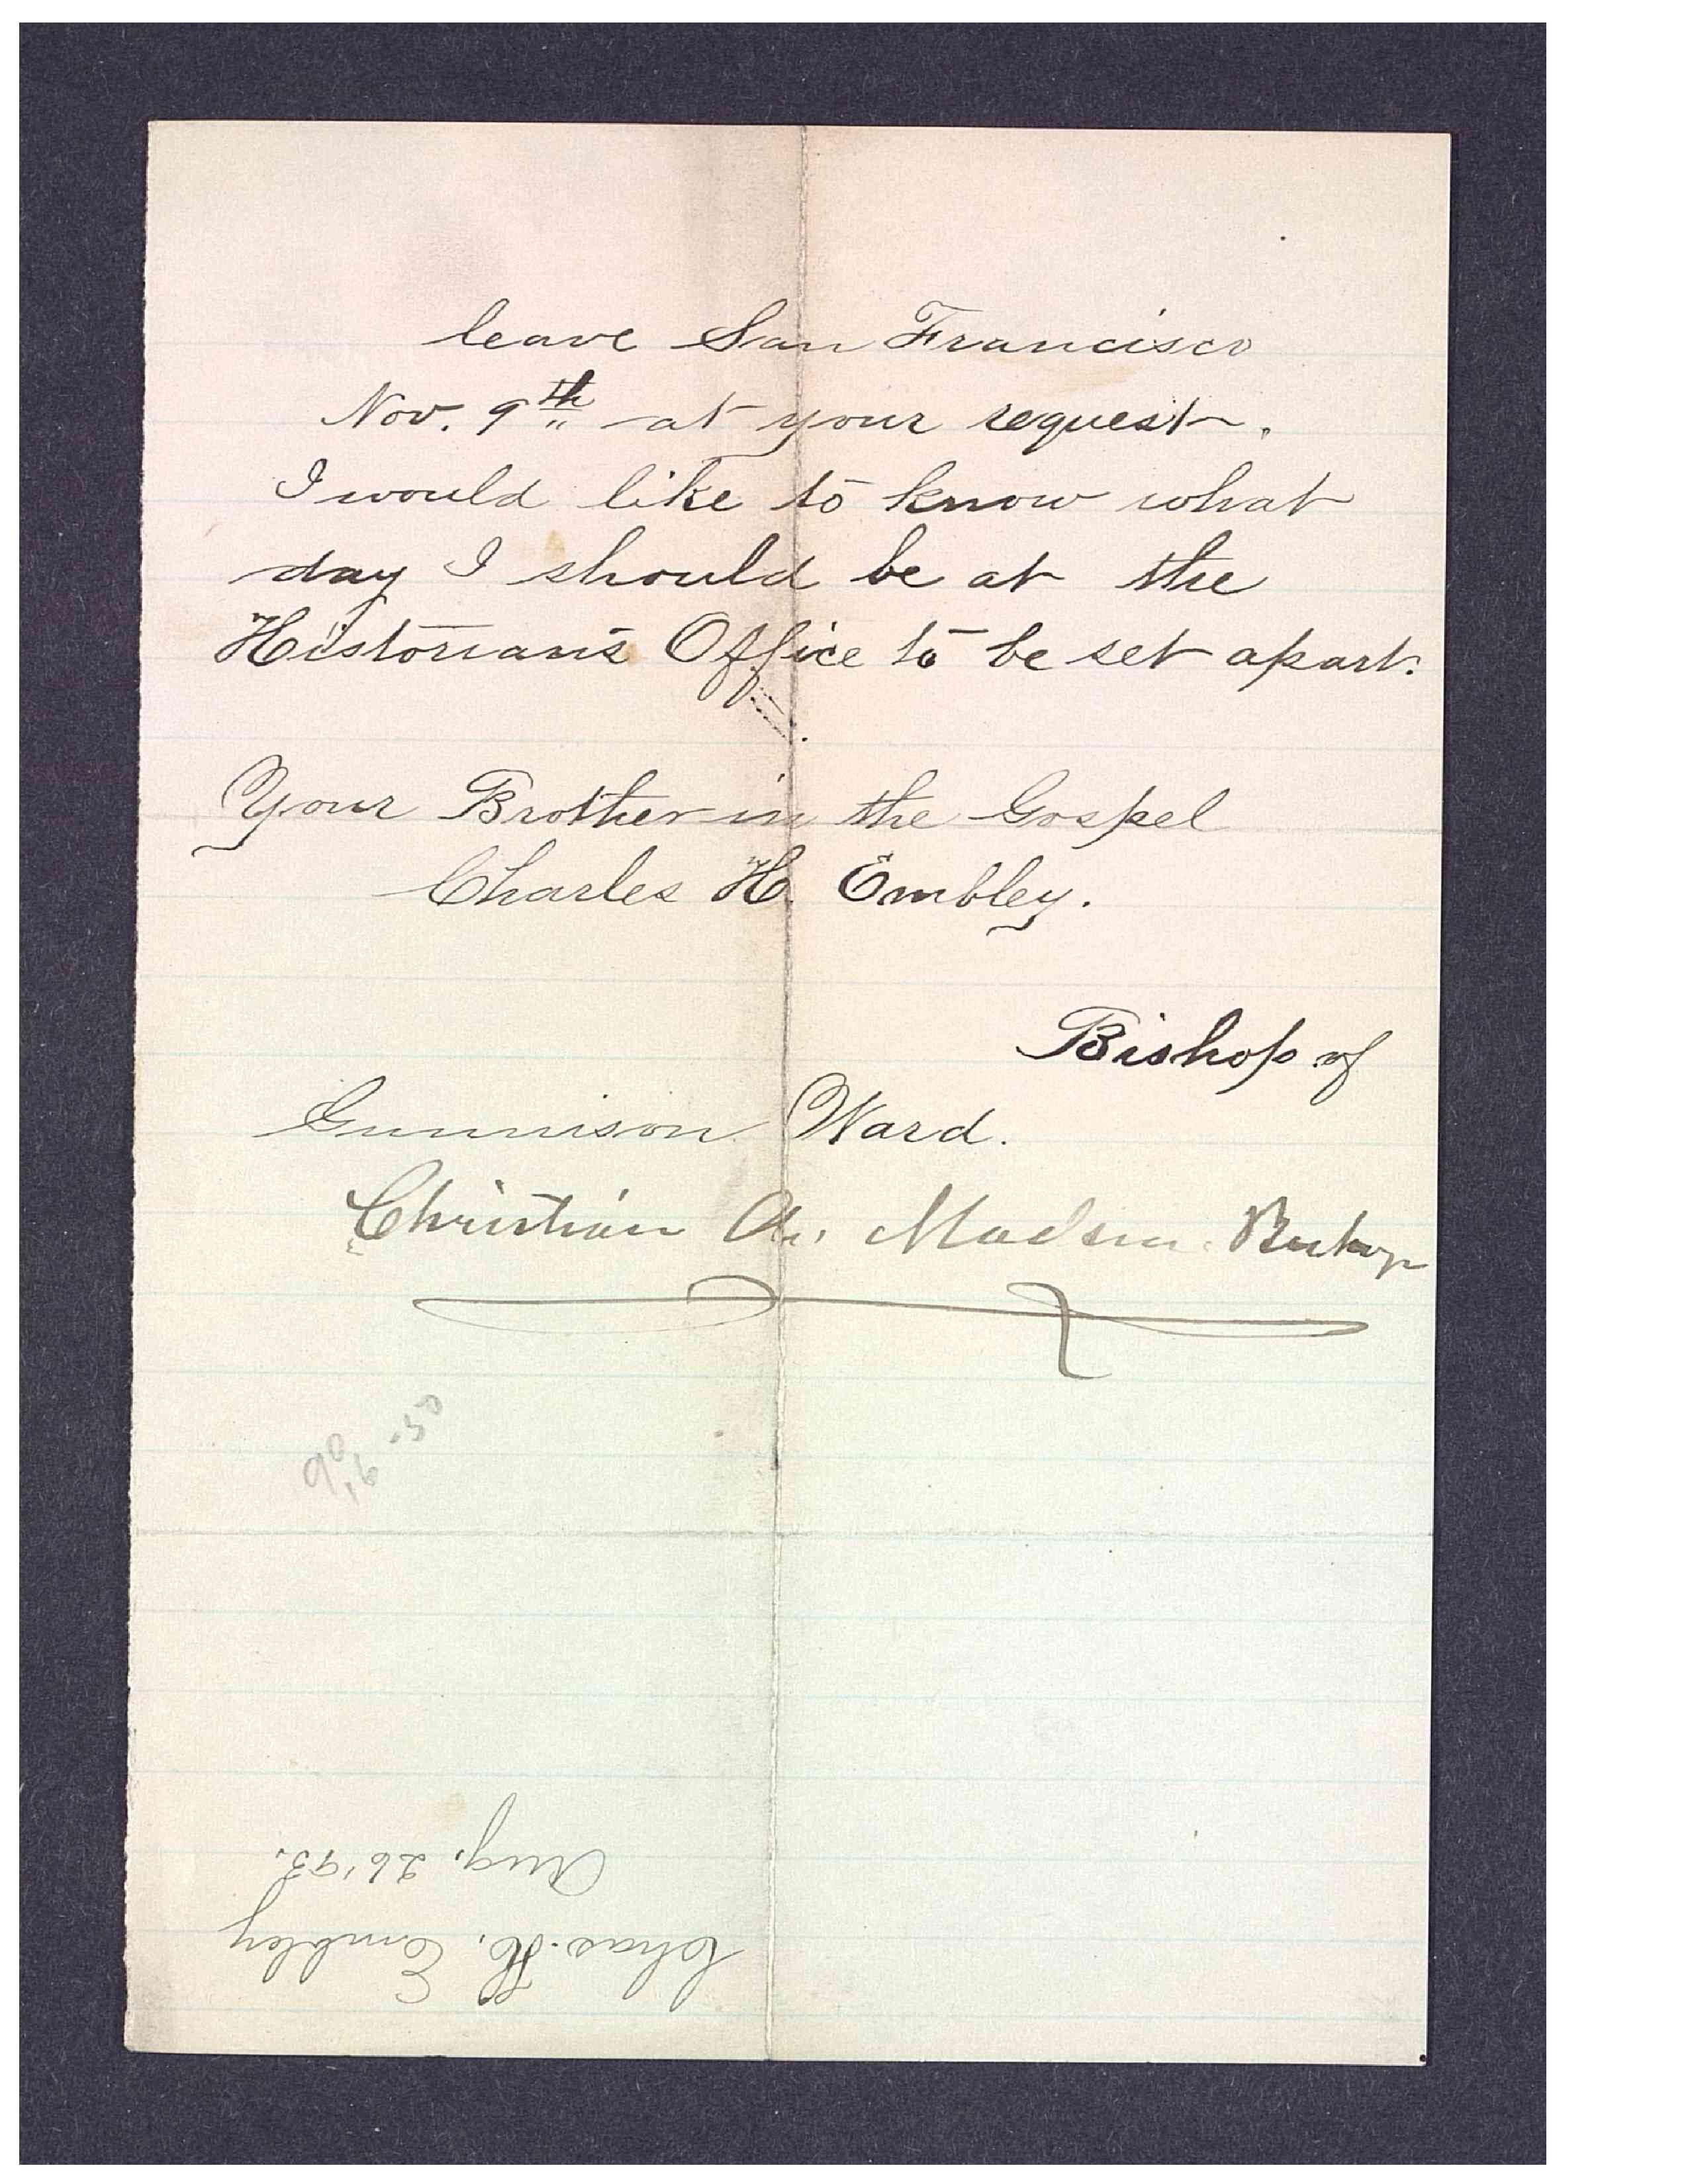 leave San Francisco
Nov. 9th at your request.
I would like to know what
day I should be at the
Historian's Office to be set apart.
Your Brother in the Gospel
Charles H. Embley.
Bishop of
Gunnison Ward.
Christian A. Madsen Bishop
Aug. 26 '95.
Chas. H. Embley